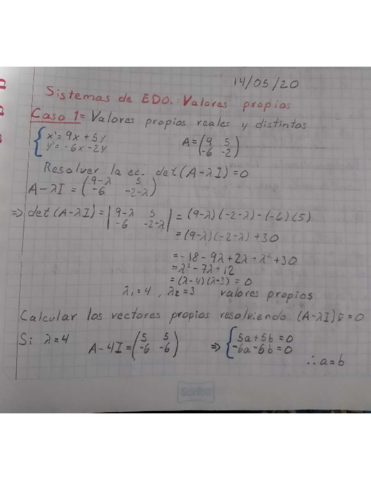 14/05/20
Sistemas de EDO. Valores propios
Caso 1= Valores propios reales y distintos
{x'=9x+5y
y'=-6x-2y
A=(9 5
-6 -2)
Resolver la ec. det(A-λI)=0
A-λI=(9-λ 5
-6 -2-λ)
⇒det(A-λI)=|9-λ 5
-6 -2-λ|=(9-λ)(-2-λ)-(-6)(5)
=(9-λ)(-2-λ)+30
=-18-9λ+2λ+λ²+30
=λ²-7λ+12
=(λ-4)(λ-3)=0
λ₁=4, λ₂=3 valores propios
Calcular los vectores propios resolviendo (A-λI)ξ=0
Si λ=4 A-4I=(5 5
-6 -6) ⇒ {5a+5b=0
-6a-6b=0
∴a=b